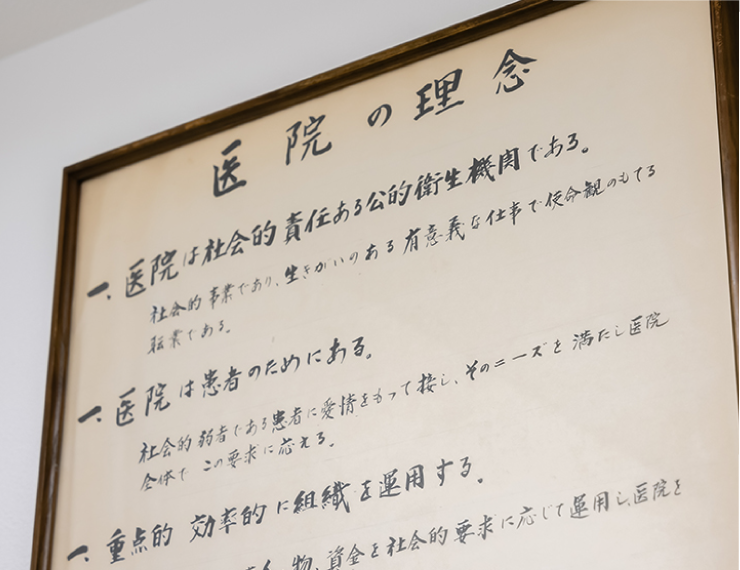 医院の理念
一、医院は社会的責任ある公的衛生機関である。
社会的事業であり、生きがいのある有意義な仕事で使命観のもてる
転業である。
一、医院は患者のためにある。
社会的弱者である患者に愛情をもって接し、そのニーズを満たし医院
全体でこの要求に応える。
一、重点的 効率的に組織を運用する。
物、資金を社会的要求に応じて運用し、医院を